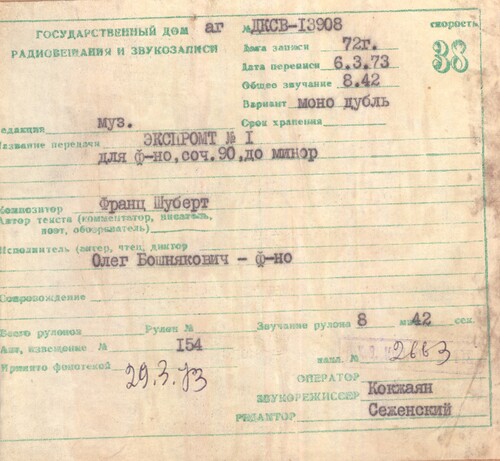 ГОСУДАРСТВЕННЫЙ ДОМ аг № ДКСВ-I3908 скорость
РАДИОВЕЩАНИЯ И ЗВУКОЗАПИСИ
Дата записи 72г. 38
Дата переписи 6.3.73
Общее звучание 8.42
Вариант моно дубль
Редакция муз. Срок хранения
Название передачи ЭКСПРОМТ № I
для ф-но,соч.90,до минор
Композитор Франц Шуберт
Автор текста (комментатор, писатель,
поэт, обозреватель)
Исполнитель (автор, чтец, диктор
Олег Бошнякович - ф-но
Сопровождение
Всего рулонов Рулон № Звучание рулона 8 мин 42 сек.
Акт, извещение № I54 напл. № 2663
Принято фонотекой 29.3.73
ОПЕРАТОР
ЗВУКОРЕЖИССЕР Кокжаян
РЕДАКТОР Сеженский